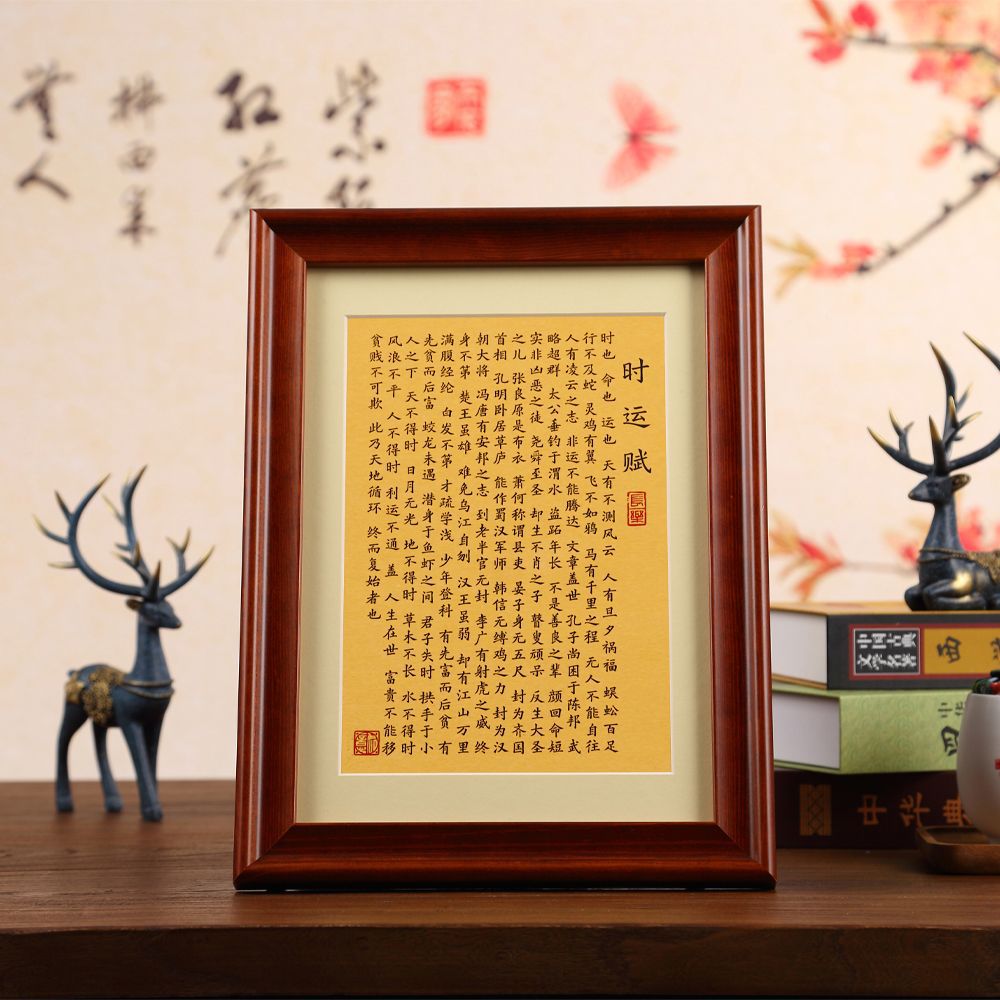 时运赋
长乐
时也 命也 运也 天有不测风云 人有旦夕祸福 蜈蚣百足
行不及蛇 灵鸡有翼 飞不如鸦 马有千里之程 无人不能自往
人有凌云之志 非运不能腾达 文章盖世 孔子尚困于陈邦 武
略超群 太公垂钓于渭水 盗跖年长 不是善良之辈 颜回命短
实非凶恶之徒 尧舜至圣 却生不肖之子 瞽叟顽呆 反生大圣
之儿 张良原是布衣 萧何称谓县吏 晏子身无五尺 封为齐国
首相 孔明卧居草庐 能作蜀汉军师 韩信无缚鸡之力 封为汉
朝大将 冯唐有安邦之志 到老半官无封 李广有射虎之威 终
身不第 楚王虽雄 难免乌江自刎 汉王虽弱 却有江山万里
满腹经纶 白发不第 才疏学浅 少年登科 有先富而后贫 有
先贫而后富 蛟龙未遇 潜身于鱼虾之间 君子失时 拱手于小
人之下 天不得时 日月无光 地不得时 草木不长 水不得时
风浪不平 人不得时 利运不通 盖 人生在世 富贵不能移
贫贱不可欺 此乃天地循环 终而复始者也
紫
红
人
中国古典
文学名著
西
中
四
中华典